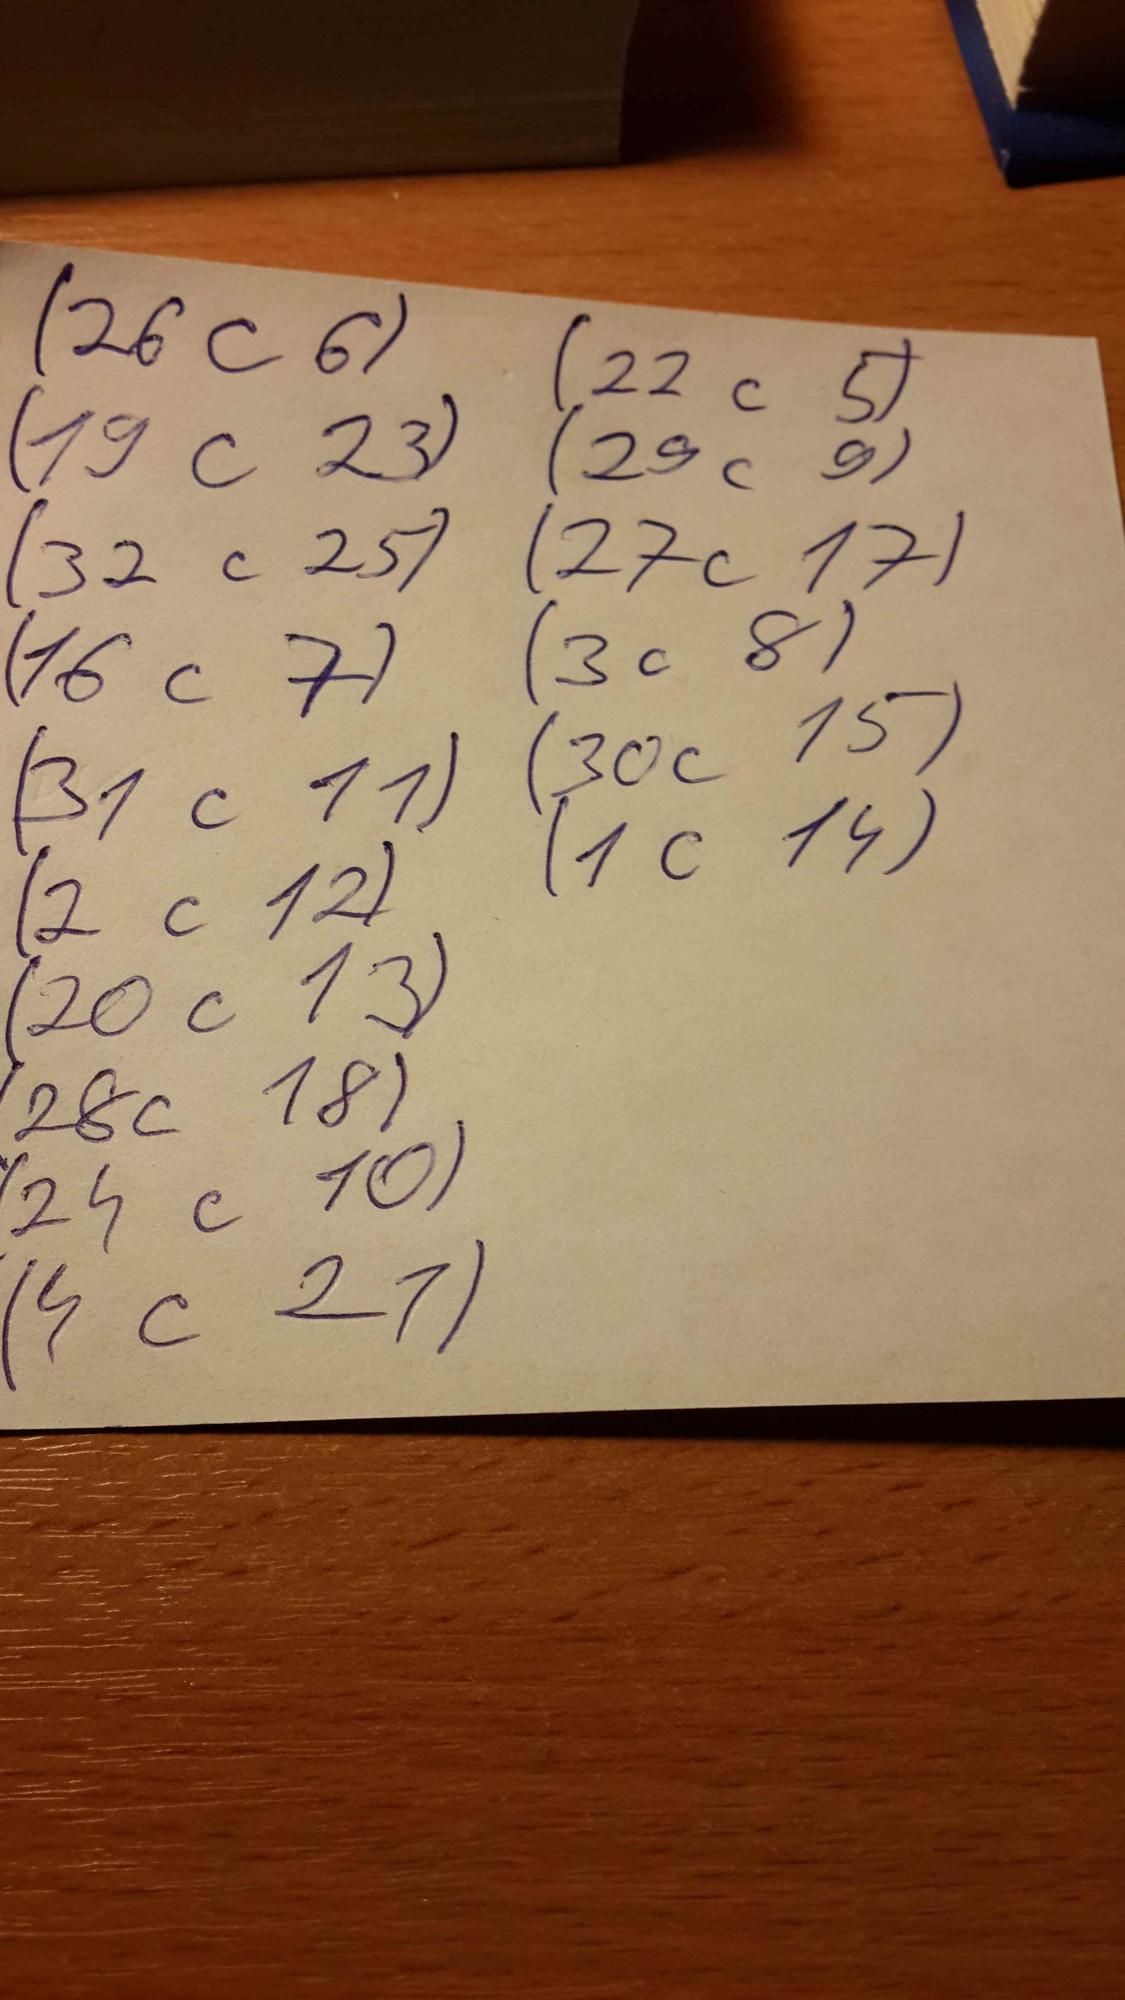 (26 с 6)
(19 с 23)
(32 с 25)
(16 с 7)
(31 с 11)
(2 с 12)
(20 с 13)
(28 с 18)
(24 с 10)
(4 с 21)
(22 с 5)
(29 с 9)
(27 с 17)
(3 с 8)
(30 с 15)
(1 с 14)